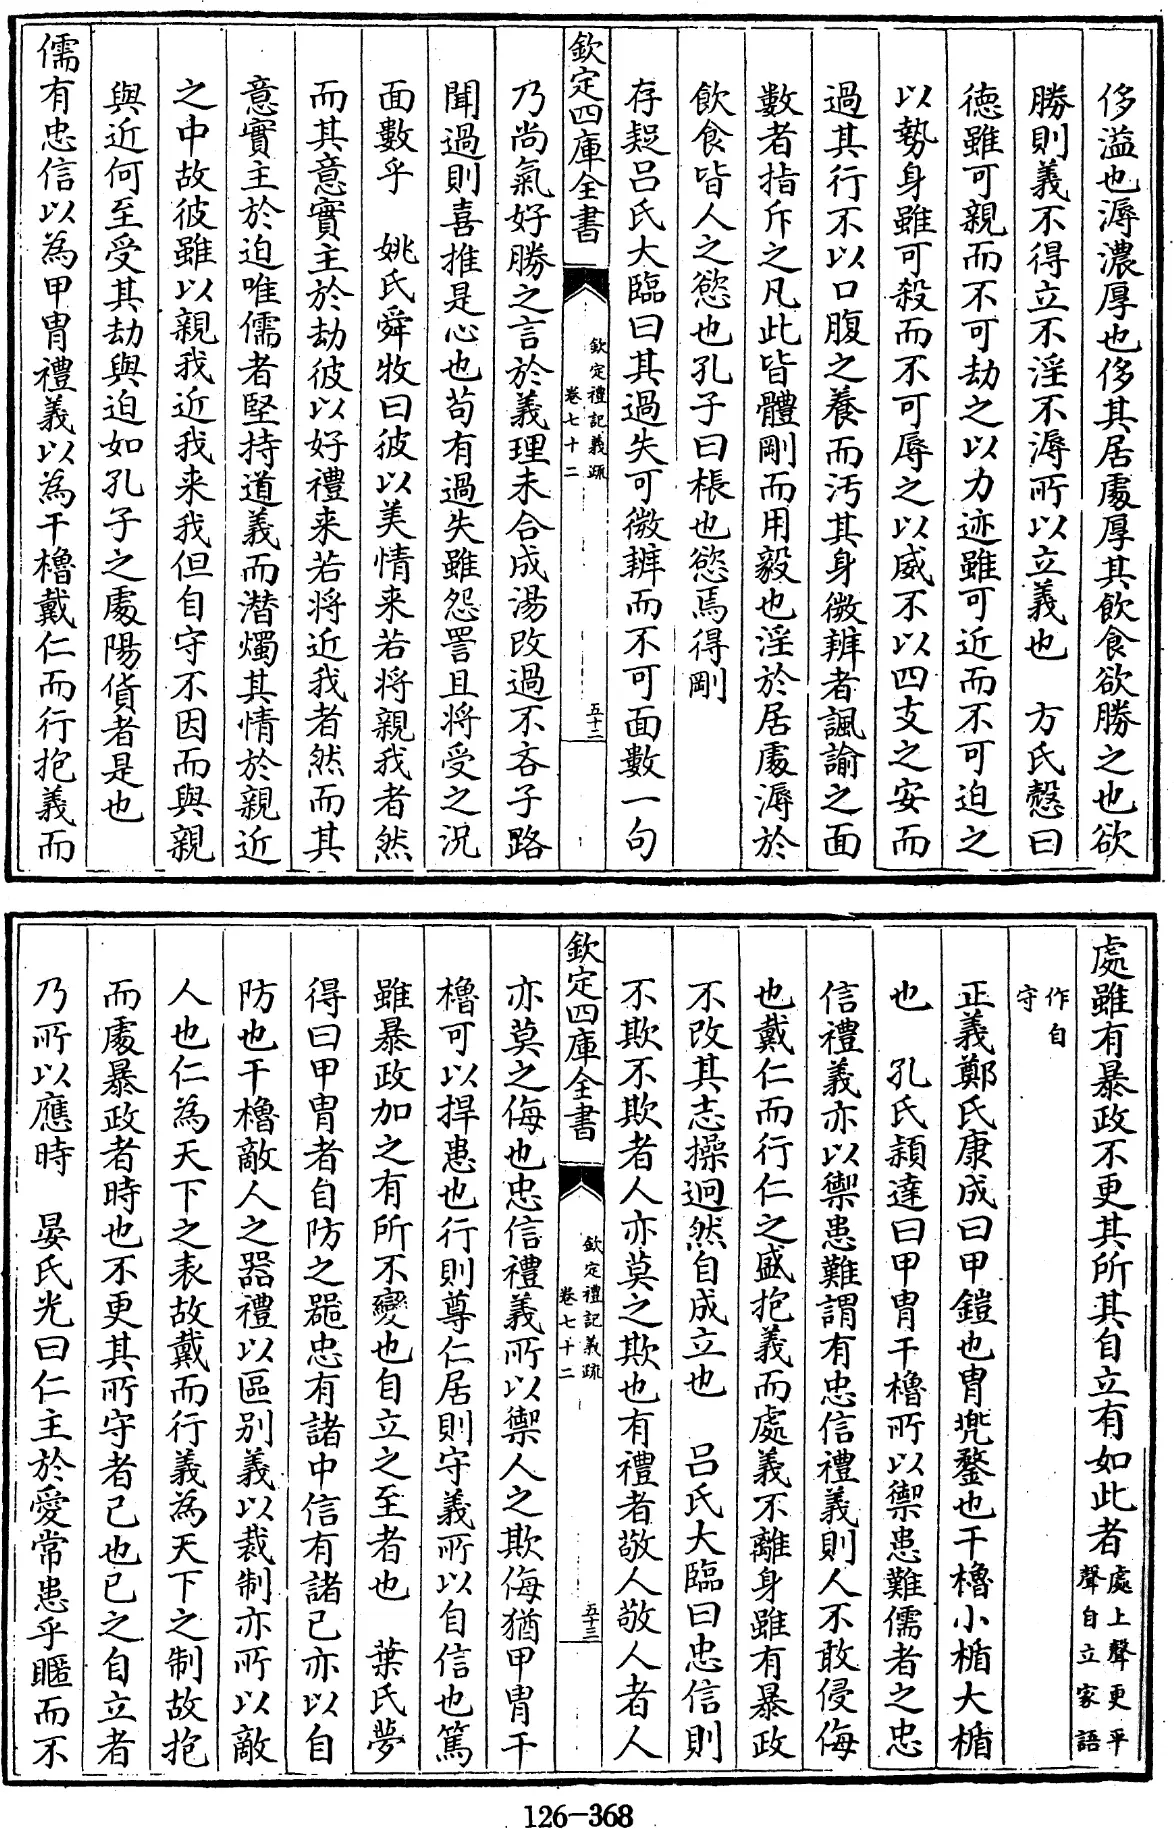 侈溢也溽濃厚也侈其居處厚其飲食欲勝之也欲
勝則義不得立不淫不溽所以立義也　方氏慤曰
徳雖可親而不可劫之以力迹雖可近而不可迫之
以勢身雖可殺而不可辱之以威不以四支之安而
過其行不以口腹之養而汚其身微辨者諷諭之面
數者指斥之凡此皆體剛而用毅也淫於居處溽於
飲食皆人之慾也孔子曰棖也慾焉得剛
存疑吕氏大臨曰其過失可微辨而不可面數一句
欽定四庫全書
欽定禮記義疏
卷七十二
五十二
乃尚氣好勝之言於義理未合成湯改過不吝子路
聞過則喜推是心也茍有過失雖怨詈且将受之況
面數乎　姚氏舜牧曰彼以美情来若将親我者然
而其意實主於劫彼以好禮来若将近我者然而其
意實主於迫唯儒者堅持道義而潜燭其情於親近
之中故彼雖以親我近我来我但自守不因而與親
與近何至受其劫與迫如孔子之處陽貨者是也
儒有忠信以為甲胄禮義以為干櫓戴仁而行抱義而
處雖有暴政不更其所其自立有如此者處上聲更平
聲自立家語
作自
守
正義鄭氏康成曰甲鎧也胄兠鍪也干櫓小楯大楯
也　孔氏穎達曰甲胄干櫓所以禦患難儒者之忠
信禮義亦以禦患難謂有忠信禮義則人不敢侵侮
也戴仁而行仁之盛抱義而處義不離身雖有暴政
不改其志操迥然自成立也　吕氏大臨曰忠信則
不欺不欺者人亦莫之欺也有禮者敬人敬人者人
欽定四庫全書
欽定禮記義疏
卷七十二
五十三
亦莫之侮也忠信禮義所以禦人之欺侮猶甲胄干
櫓可以捍患也行則尊仁居則守義所以自信也篤
雖暴政加之有所不變也自立之至者也　葉氏夢
得曰甲胄者自防之噐忠有諸中信有諸已亦以自
防也干櫓敵人之器禮以區别義以裁制亦所以敵
人也仁為天下之表故戴而行義為天下之制故抱
而處暴政者時也不更其所守者己也已之自立者
乃所以應時　晏氏光曰仁主於愛常患乎暱而不
126-368